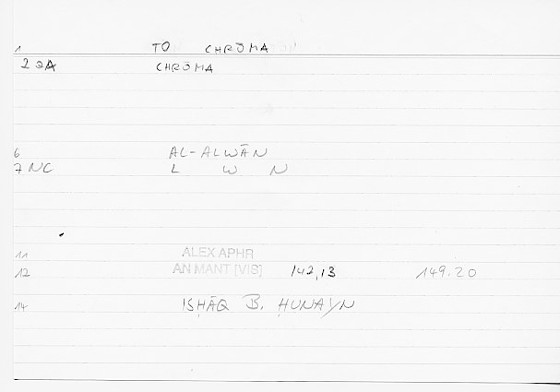 1 TO CHRŌMA
2 QA CHRŌMA
6 AL-ALWĀN
7 NC L W N
11 ALEX APHR
12 AN MANT [VIS] 142,13 149.20
14 ISḤĀQ B. ḤUNAYN